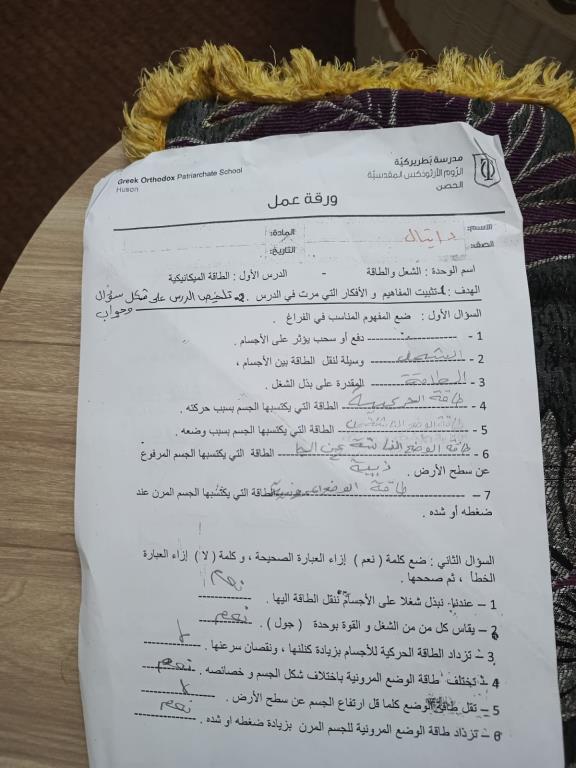 Greek Orthodox Patriarchate School
Huson
مدرسة بطريركية
الروم الأرثوذكس المقدسية
الحصن
ورقة عمل
الاسم: دانيال
المادة:
الصف:
التاريخ:
اسم الوحدة : الشغل والطاقة - الدرس الأول : الطاقة الميكانيكية
الهدف : 1- تثبيت المفاهيم و الأفكار التي مرت في الدرس . 2- تلخيص الدرس على شكل سؤال وجواب
السؤال الأول : ضع المفهوم المناسب في الفراغ .
1 - ---------------- دفع أو سحب يؤثر على الأجسام .
2 - الشغل وسيلة لنقل الطاقة بين الأجسام ،
3 - الطاقة المقدرة على بذل الشغل .
4 - طاقة الحركية الطاقة التي يكتسبها الجسم بسبب حركته .
5 - طاقة الوضع الطاقة التي يكتسبها الجسم بسبب وضعه .
6 - طاقة الوضع الناشئة عن الجاذبية الطاقة التي يكتسبها الجسم المرفوع
عن سطح الأرض .
7 - طاقة الوضع الطاقة التي يكتسبها الجسم المرن عند
ضغطه أو شده .
السؤال الثاني : ضع كلمة ( نعم ) إزاء العبارة الصحيحة ، و كلمة ( لا ) إزاء العبارة
الخطأ ، ثم صححها .
1 – عندما نبذل شغلا على الأجسام ننقل الطاقة اليها . نعم
2 – يقاس كل من من الشغل و القوة بوحدة ( جول ) . نعم
3 – تزداد الطاقة الحركية للأجسام بزيادة كتلتها ، ونقصان سرعتها . لا
4 – تختلف طاقة الوضع المرونية باختلاف شكل الجسم و خصائصه . نعم
5 – تقل طاقة الوضع كلما قل ارتفاع الجسم عن سطح الأرض . لا
6 – تزداد طاقة الوضع المرونية للجسم المرن بزيادة ضغطه او شده . نعم